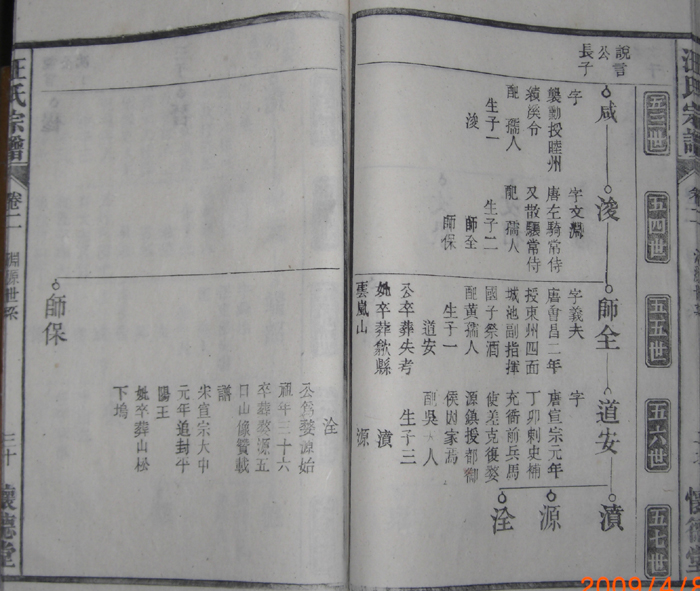 五三世
五四世
五五世
五六世
五七世
說言
公
長子
咸
浚
師全
道安
濆
源
洤
字
襲勳授睦州
績溪令
配 孺人
生子一
浚
字文淵
唐左騎常侍
又散驤常侍
配 孺人
生子二
師全
師保
字義夫
唐會昌二年
授東州四面
城池副指揮
國子祭酒
配黃孺人
生子一
道安
公卒葬失考
妣卒葬歙縣
雲嵐山
字
唐宣宗元年
丁卯刺史楠
充衙前兵馬
使差克復婺
源鎮授都御
侯因家焉
副吳夫人
生子三
濆
源
洤
公為婺源始
祖年三十六
卒葬婺源五
口山像贊載
譜
宋宣宗大中
元年追封平
陽王
妣卒葬山松
下塢
師保
汪氏宗譜
卷二
淵源世系
三十
懷德堂
2009/4/8